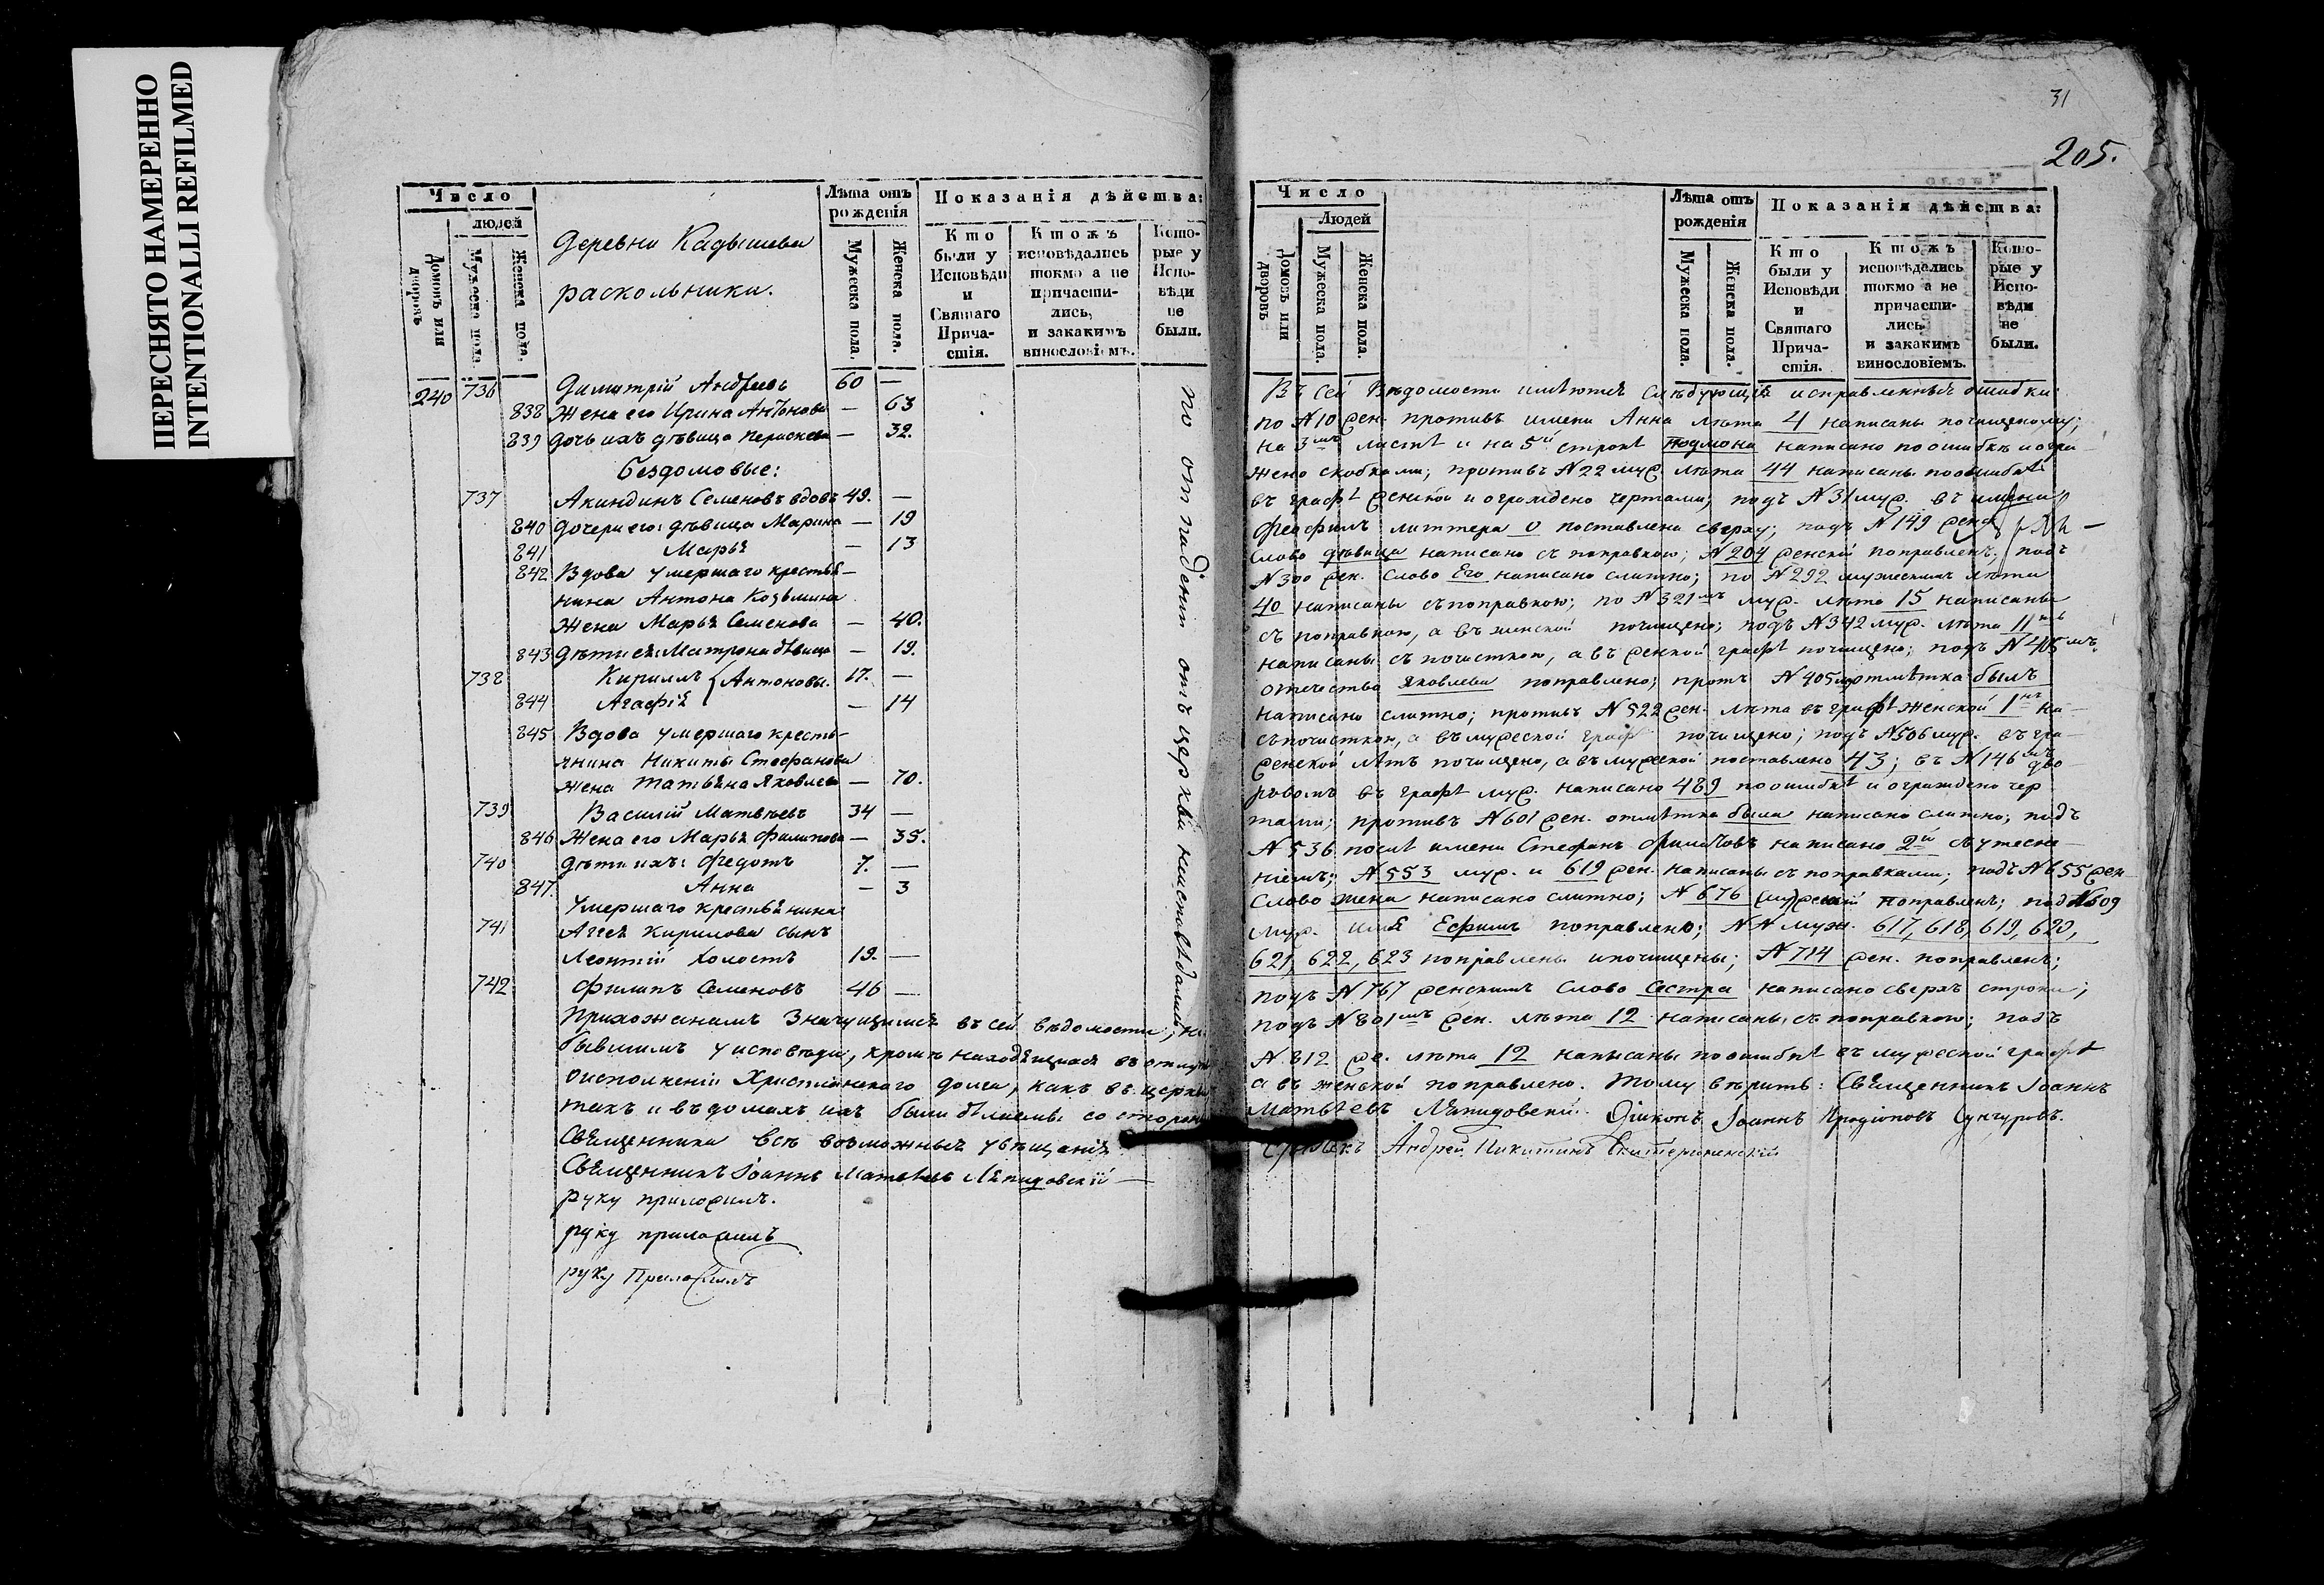 ПЕРЕСНЯТО НАМЕРЕННО
INTENTIONALLI REFILMED
Число
людей
Домовъ или дворовъ
Мужеска пола.
Женска пола.
деревни Кадышева
раскольники.
Лѣта отъ рожденія
Мужеска пола.
Женска пола.
Показанія дѣйства:
Кто были у Исповѣди и Святаго Прича-стія.
Ктожъ исповѣдались токмо а не причасти-лись, и закакимъ винословіемъ.
Кото-рые у Испо-вѣди не были.
240 736 Димитрій Андреевъ 60 —
838 Жена его Ирина Антонова — 63
839 дочь ихъ дѣвица Параскева — 32.
бездомовые:
737 Акиндинъ Семеновъ вдовъ 49. —
840 дочери его: дѣвица Марина — 19
841 Марья — 13
842 Вдова умершаго крестья-
нина Антона Козьмина
жена Марья Семенова — 40.
843 дѣти ея: Матрона дѣвица — 19.
738 Кириллъ } Антоновы. 17. —
844 Агафія — 14
845 Вдова умершаго кресть-
янина Никиты Стефанова
жена Татьяна Яковлева — 70.
739 Василій Матвѣевъ 34 —
846 Жена его Марья Филипова — 35.
740 дѣти ихъ: Федотъ 7. —
847. Анна — 3
умершаго крестьянина
741 Аггея Кирилова сынъ
Леонтій холостъ 19. —
742 Филипъ Семеновъ 46 —
по отпаденіи отъ церкви неисповѣдались
Прихожанамъ значущимся въ сей вѣдомости, не
бывшимъ у исповѣди, кромѣ находящихся въ отлуч
о исполненіи Христіанскаго долга, какъ въ церкви
такъ и въ домахъ ихъ были дѣлаемы со стороны
Священника всѣ возможныя увѣщанія
Священникъ Іоаннъ Матвѣевъ Ляпидовскій —
руку приложилъ.
руку приложилъ
руку Приложилъ
31
205.
Число
Людей
Домовъ или дворовъ
Мужеска пола.
Женска пола.
Лѣта отъ рожденія
Мужеска пола.
Женска пола.
Показанія дѣйства:
Кто были у Исповѣди и Святаго Прича-стія.
Ктожъ исповѣдались токмо а не причасти-лись, и закакимъ винословіемъ.
Кото-рые у Испо-вѣди не были.
Въ сей Вѣдомости имѣются слѣдующія исправленныя ошибки:
по №10 жен. противъ имени Анна лѣта 4 написаны почищеному;
на 3мъ листѣ и на 5й строкѣ написано по ошибкѣ и огра-
жено скобками; противъ №22 муж. лѣта 44 написаны по ошибкѣ
въ графѣ женской и ограждено чертами; подъ №31 муж. въ имени
Феофилъ литтера о поставлена сверху; подъ №149 жен.
слово дѣвица написано съ поправкою; №204 женскій поправленъ; подъ
№300 жен. слово Его написано слитно; по №292 мужескимъ лѣта
40 написаны съ поправкою; по №321мъ муж. лѣта 15 написаны
съ поправкою, а въ женской почищено; подъ №342 муж. лѣта 11
написаны съ почисткою, а въ женской графѣ почищено; подъ №405мъ
отечество Яковлева поправлено; прот. №405 отмѣтка былъ
написано слитно; противъ №522 жен. лѣта въ графѣ женской 1 на-
съ почисткою, а въ мужеской граф почищено; подъ №506 муж. въ гра-
женской лѣтъ почищено, а въ мужеской поставлено 43; въ №146мъ дво-
ровомъ въ графѣ муж. написано 489 по ошибкѣ и ограждено чер
тами; противъ №601 жен. отмѣтка была написано слитно; подъ
№536 послѣ имени Стефанъ Филиповъ написано 2й съ утесне-
ніемъ; №553 муж. и 619 жен. написаны съ поправками; подъ №655 жен
слово жена написано слитно; №676 поправленъ; подъ №609
муж. имя Ефимъ поправлено; №№ муж. 617, 618, 619, 620,
621, 622, 623 поправлены и почищены; №714 жен. поправленъ;
подъ №767 женскимъ слово сестра написано сверхъ строки;
подъ №801мъ жен. лѣта 12 написаны съ поправкою; подъ
№812 же. лѣта 12 написаны по ошибкѣ въ мужеской графѣ
а въ женской поправлено. Тому вѣрить: Священникъ Іоаннъ
Матвѣевъ Ляпидовскій. Діаконъ Іоаннъ Продіоновъ Сунгуровъ.
Андрей Никитинъ Екатерининскій